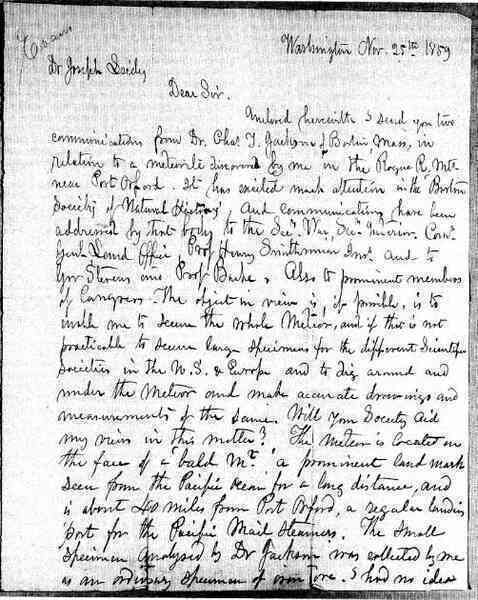 Washington Nov. 25th 1859
Dr Joseph Leidy
Dear Sir.
Enclosed herewith I send you two
communications from Dr. Chas. T. Jackson of Boston, Mass, in
relation to a meteorite discovered by me in the Rogue R. Mts
near Port Orford. It has excited much attention in the Boston
Society of Natural History. And communications have been
addressed by that body to the Sec. War, Sec. Interior. Comr.
Genl. Land Office, Prof Henry Smithsonian Inst. and to
Gov Stevens and Prof. Bache. Also to prominent members
of Congress. The object in view is, if possible, is to
enable me to secure the whole Meteor, and if this is not
practicable to secure large specimens for the different Scientific
Societies in the U.S. & Europe and to dig around and
under the Meteor and make accurate drawings and
measurements of the same. Will you Society aid
my views in this matter? The Meteor is located on
the face of a "bald Mt." a prominent land mark
seen from the Pacific Ocean for a long distance, and
is about 40 miles from Port Orford, a regular landing
port for the Pacific Mail Steamers. The small
Specimen analysed by Dr Jackson was collected by me
as an ordinary specimen of iron ore. I had no idea